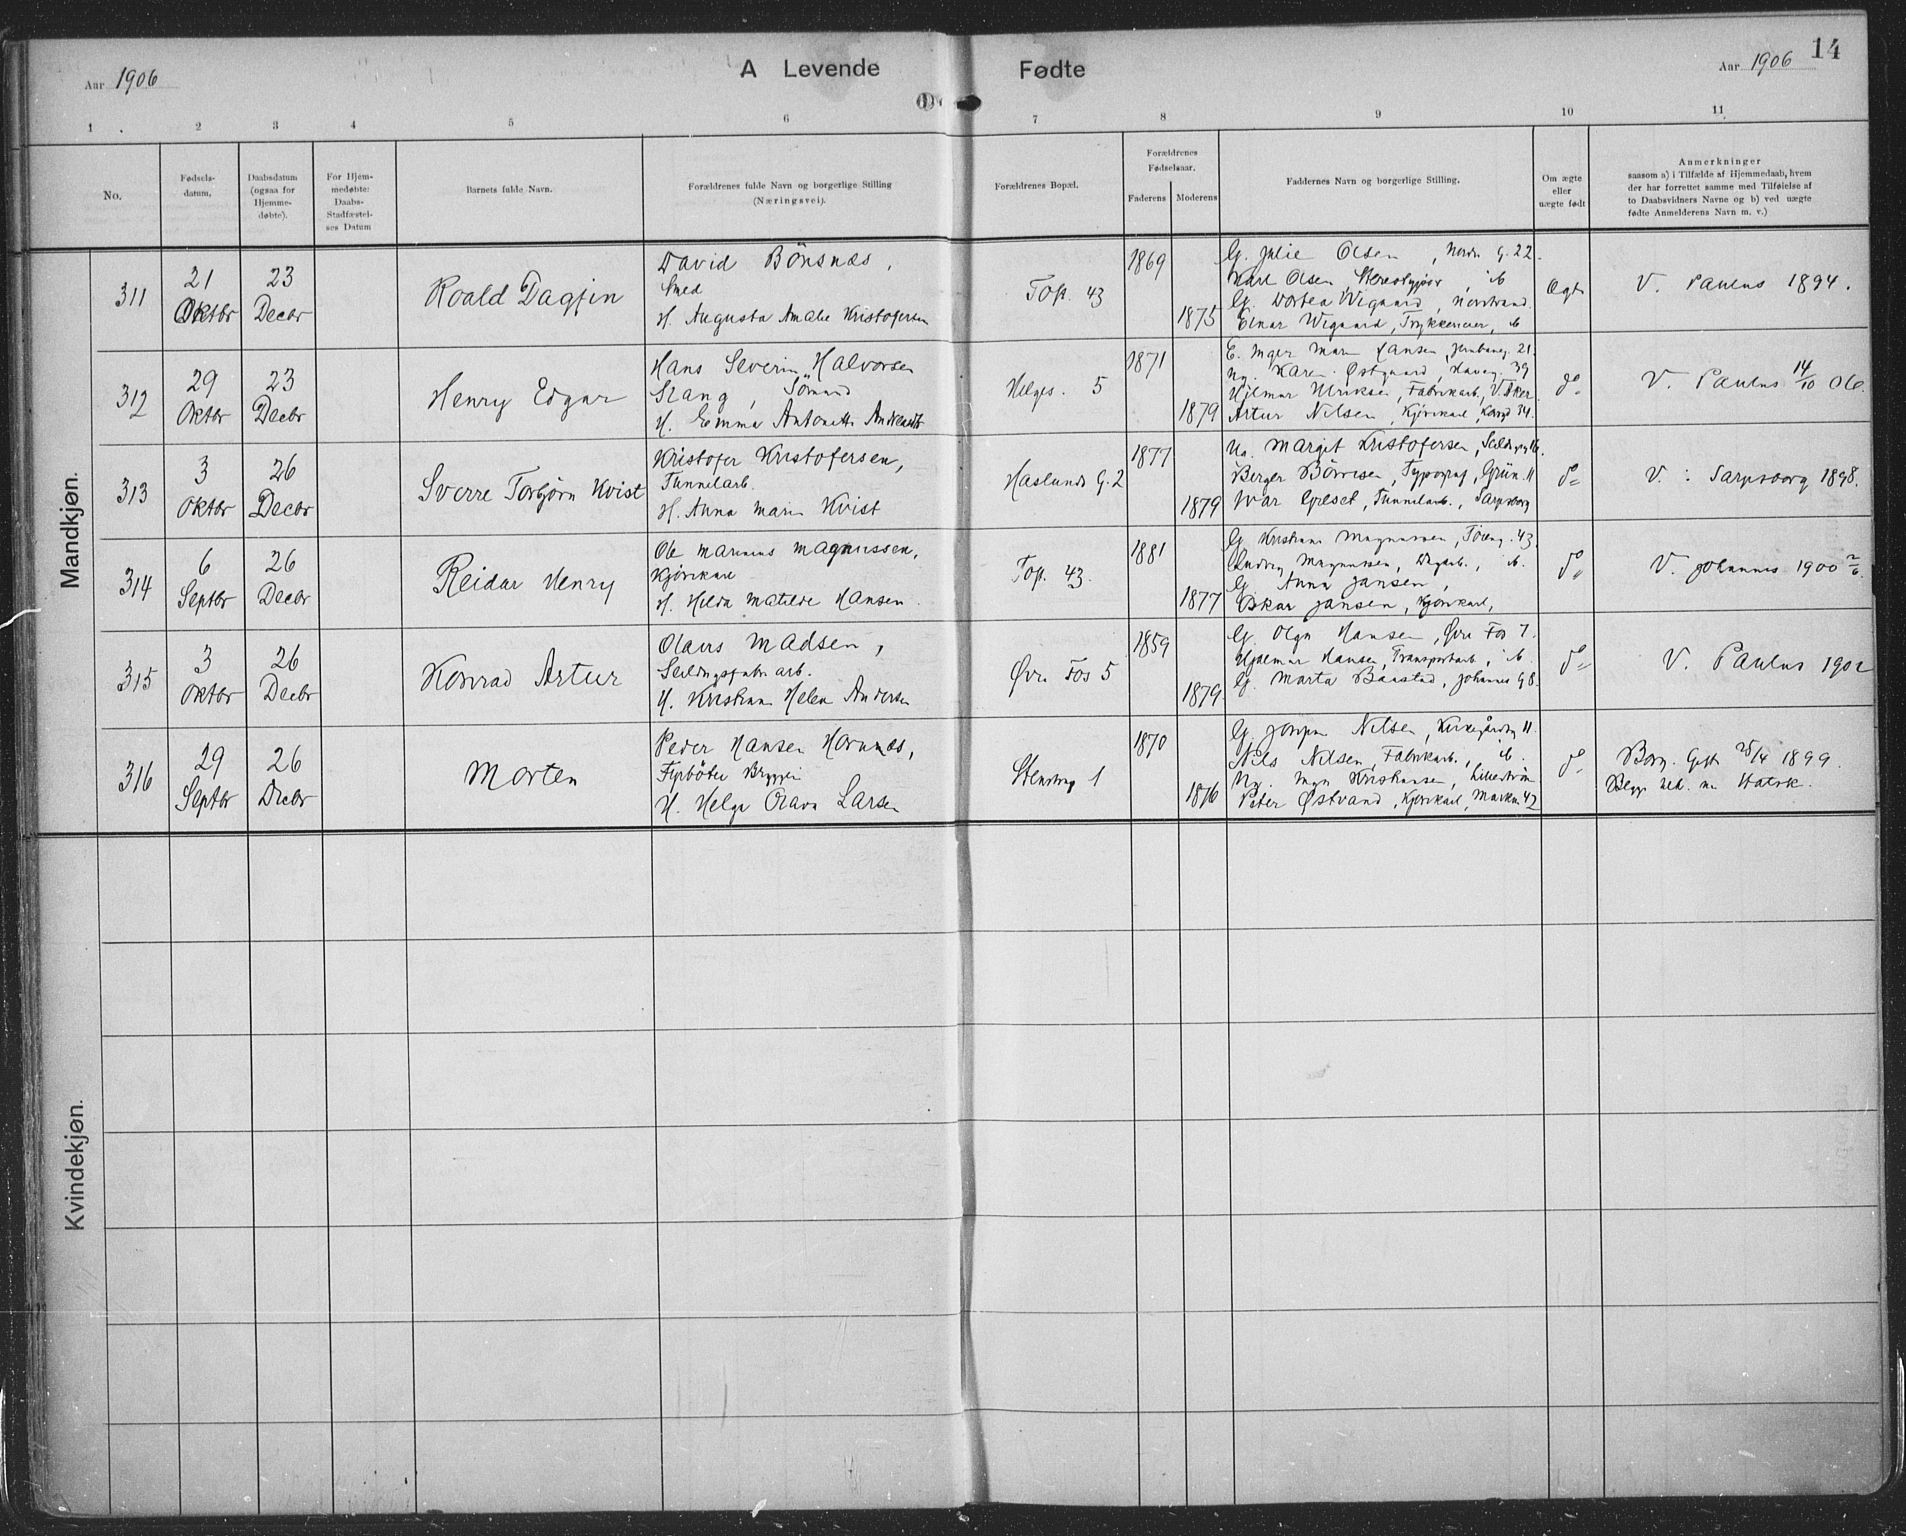 Aar 1906
A Levende Fødte
Aar 1906
14
1 2 3 4 5 6 7 8 9 10 11
No.
Fødsels-
datum.
Daabsdatum
(ogsaa for
Hjemme-
døbte).
For Hjem-
medøbte:
Daabs-
Stadfæstel-
ses Datum
Barnets fulde Navn.
Forældrenes fulde Navn og borgerlige Stilling
(Næringsvei).
Forældrenes Bopæl.
Forældrenes
Fødselsaar.
Faderens Moderens
Faddernes Navn og borgerlige Stilling.
Om ægte
eller
uægte født
Anmerkninger
saasom a) i Tilfælde af Hjemmedaab, hvem
der har forrettet samme med Tilføielse af
to Daabsvidners Navne og b) ved uægte
fødte Anmelderens Navn m. v.)
Mandkjøn.
311
21
Oktbr
23
Decbr
Roald Dagfin
David Bönsnæs,
Smed
H. Augusta Amalie Kristofersen
Tøf. 43
1869
1875
G. Julie Olsen, Nordr. G. 22.
Karl Olsen, Stereotypør, ib
G. Dortea Wigaard, Norstrand
Einar Wigaard, Trykkerieier, ib
Ægt
V. Paulus 1894.
312
29
Oktbr
23
Decbr
Henry Edgar
Hans Severin Halvorsen
Stang, Sømand
H. Emma Antonette
Helges. 5
1871
1879
E. Inger Marie Hansen, Jernbaneg. 21.
Ug. Karen Østgaard, Haveg. 39
Hjelmar Ulriksen, Fabrikarb., V. Aker
Artur Nilsen, Kjörekarl, 34.
do
V. Paulus 14/10 06
313
3
Oktbr
26
Decbr
Sverre Torbjørn Kvist
Kristofer Kristofersen,
Tunnelarb.
H. Anna Marie Kvist
Haslunds G. 2
1877
1879
Ug. Margit Kristofersen, 16.
Birger Børresen, Typograf, Grün. 11
Ivar Gjelset, Tunnelarb., Sarpsborg
do
V. Sarpsborg 1898.
314
6
Septbr
26
Decbr
Reidar Henry
Ole Marinius Magnussen,
Kjørekarl
H. Hilda Matilde Hansen
Tøf. 43.
1881
1877
G. Kristiane Magnussen, Tøieng. 43.
Ludvig Magnussen, Dagarb., ib.
G. Anna Jansen,
Oskar Jansen, Kjørekarl,
do
V. Johannes 1900
315
3
Oktbr
26
Decbr
Konrad Artur
Olaus Madsen,
Seildugsfabr. arb.
H. Kristiane Helene Andersen
Øvre Fos 5
1859
1879
G. Olga Hansen, Øvre Fos 7.
Hjalmar Hansen, Transportarb., ib
G. Marta Baastad, Johannes G 8.
do
V. Paulus 1902
316
29
Septbr
26
Decbr
Morten
Peder Hansen Hornnæs,
Fyrbøter Bryggeri
H. Helga Olava Larsen
Stenstrug 1
1870
1876
G. Josefine Nilsen, Kirkegårdsg 11.
Nils Nilsen, Fabrikarb., ib.
Ug. Inga Kristiansen, Lillestrøm
Peter Østvand, Kjørekarl, Markv. 42
do
Borg. Gift 25/4 1899.
Begge Udm. m. Statsk.
Kvindekjøn.